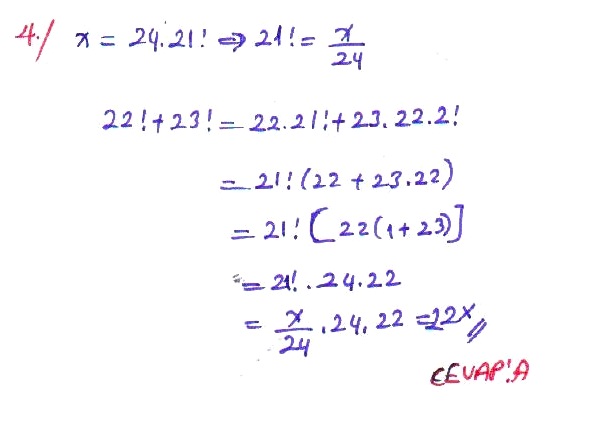 4./ x = 24.21! ⇒ 21! = x/24
22! + 23! = 22.21! + 23.22.2!
= 21! (22 + 23.22)
= 21! [22(1+23)]
= 21! . 24.22
= x/24 . 24. 22 = 22x //
CEVAP: A